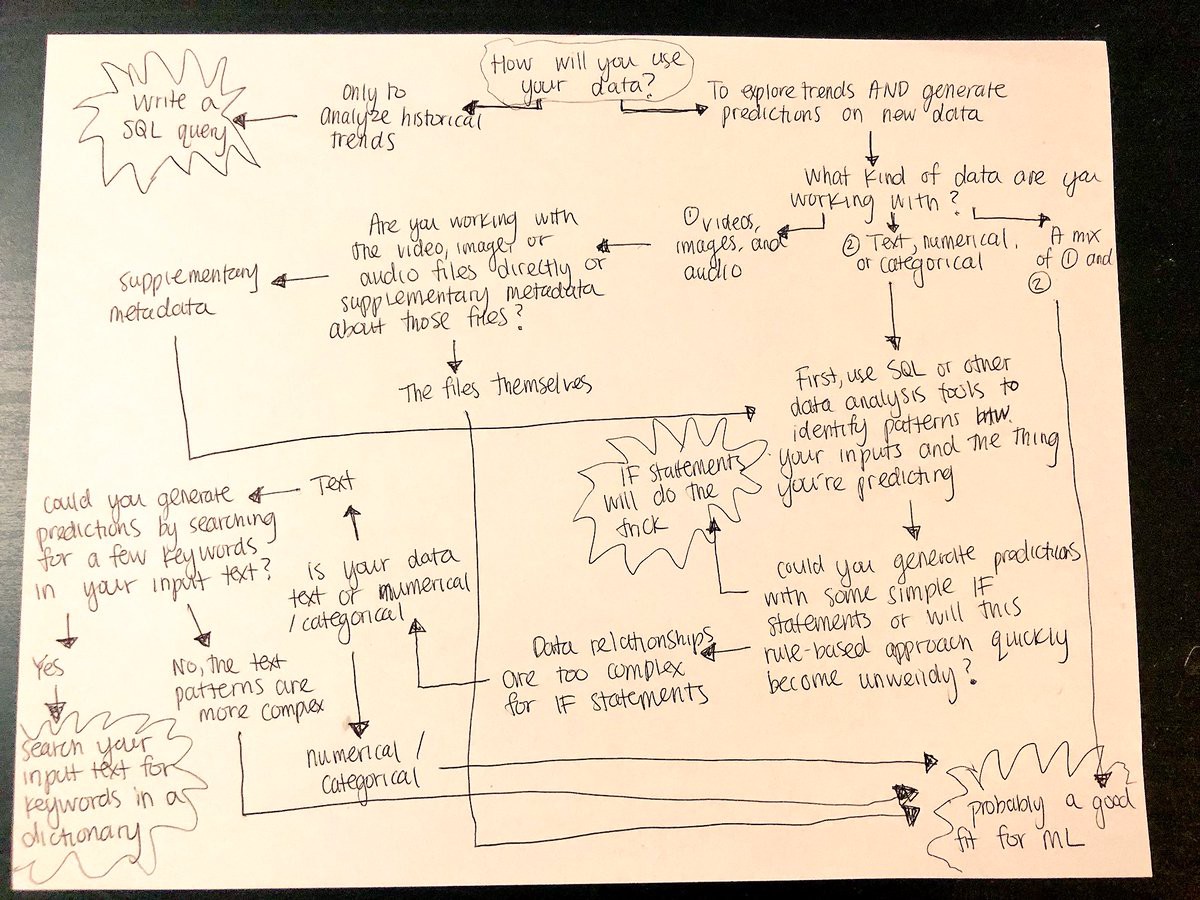 How will you use
your data?
Write a
SQL query
only to
analyze historical
trends
To explore trends AND generate
predictions on new data
What kind of data are you
working with?
① videos,
images, and
audio
② Text, numerical,
or categorical
A mix
of ① and
②
Are you working with
the video, image, or
audio files directly or
supplementary metadata
about those files?
supplementary
metadata
The files themselves
First, use SQL or other
data analysis tools to
identify patterns btw.
your inputs and the thing
you're predicting
IF statements
will do the
trick
could you generate predictions
with some simple IF
statements or will this
rule-based approach quickly
become unwieldy?
Data relationships
are too complex
for IF statements
is your data
text or numerical
/categorical
Text
could you generate
predictions by searching
for a few keywords
in your input text?
Yes
No, the text
patterns are
more complex
search your
input text for
keywords in a
dictionary
numerical /
categorical
probably a good
fit for ML